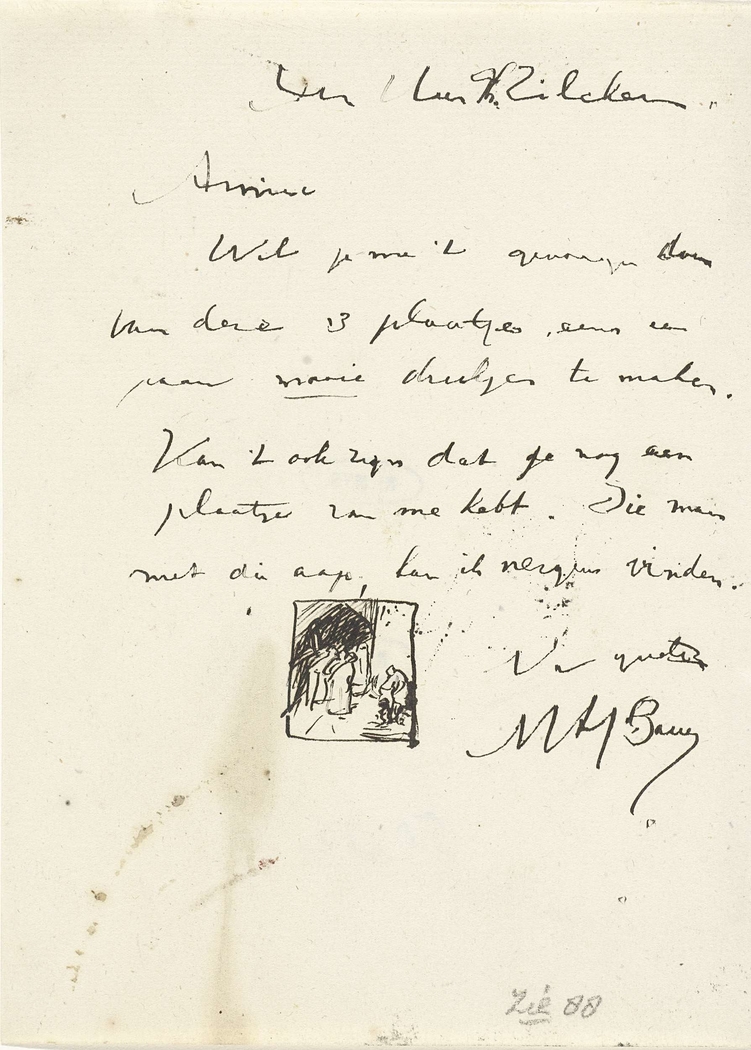 Den Heer Ph. Zilcken.
Amice
Wil je me 't genoegen doen
van deze 3 plaatjes, eens een
paar mooie drukjes te maken.
Kan 't ook zijn dat je nog een
plaatje van me hebt. Die man
met die aap, kan ik nergens vinden.
M A J Bauer
Zie 88